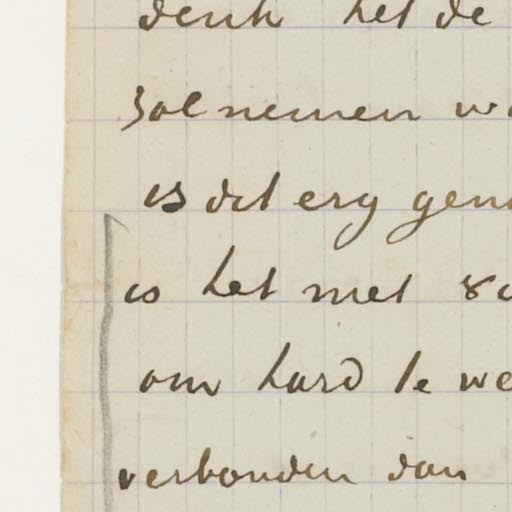 denk het de
zal nemen
is dit erg
is het met
om hard te we
verbonden dan